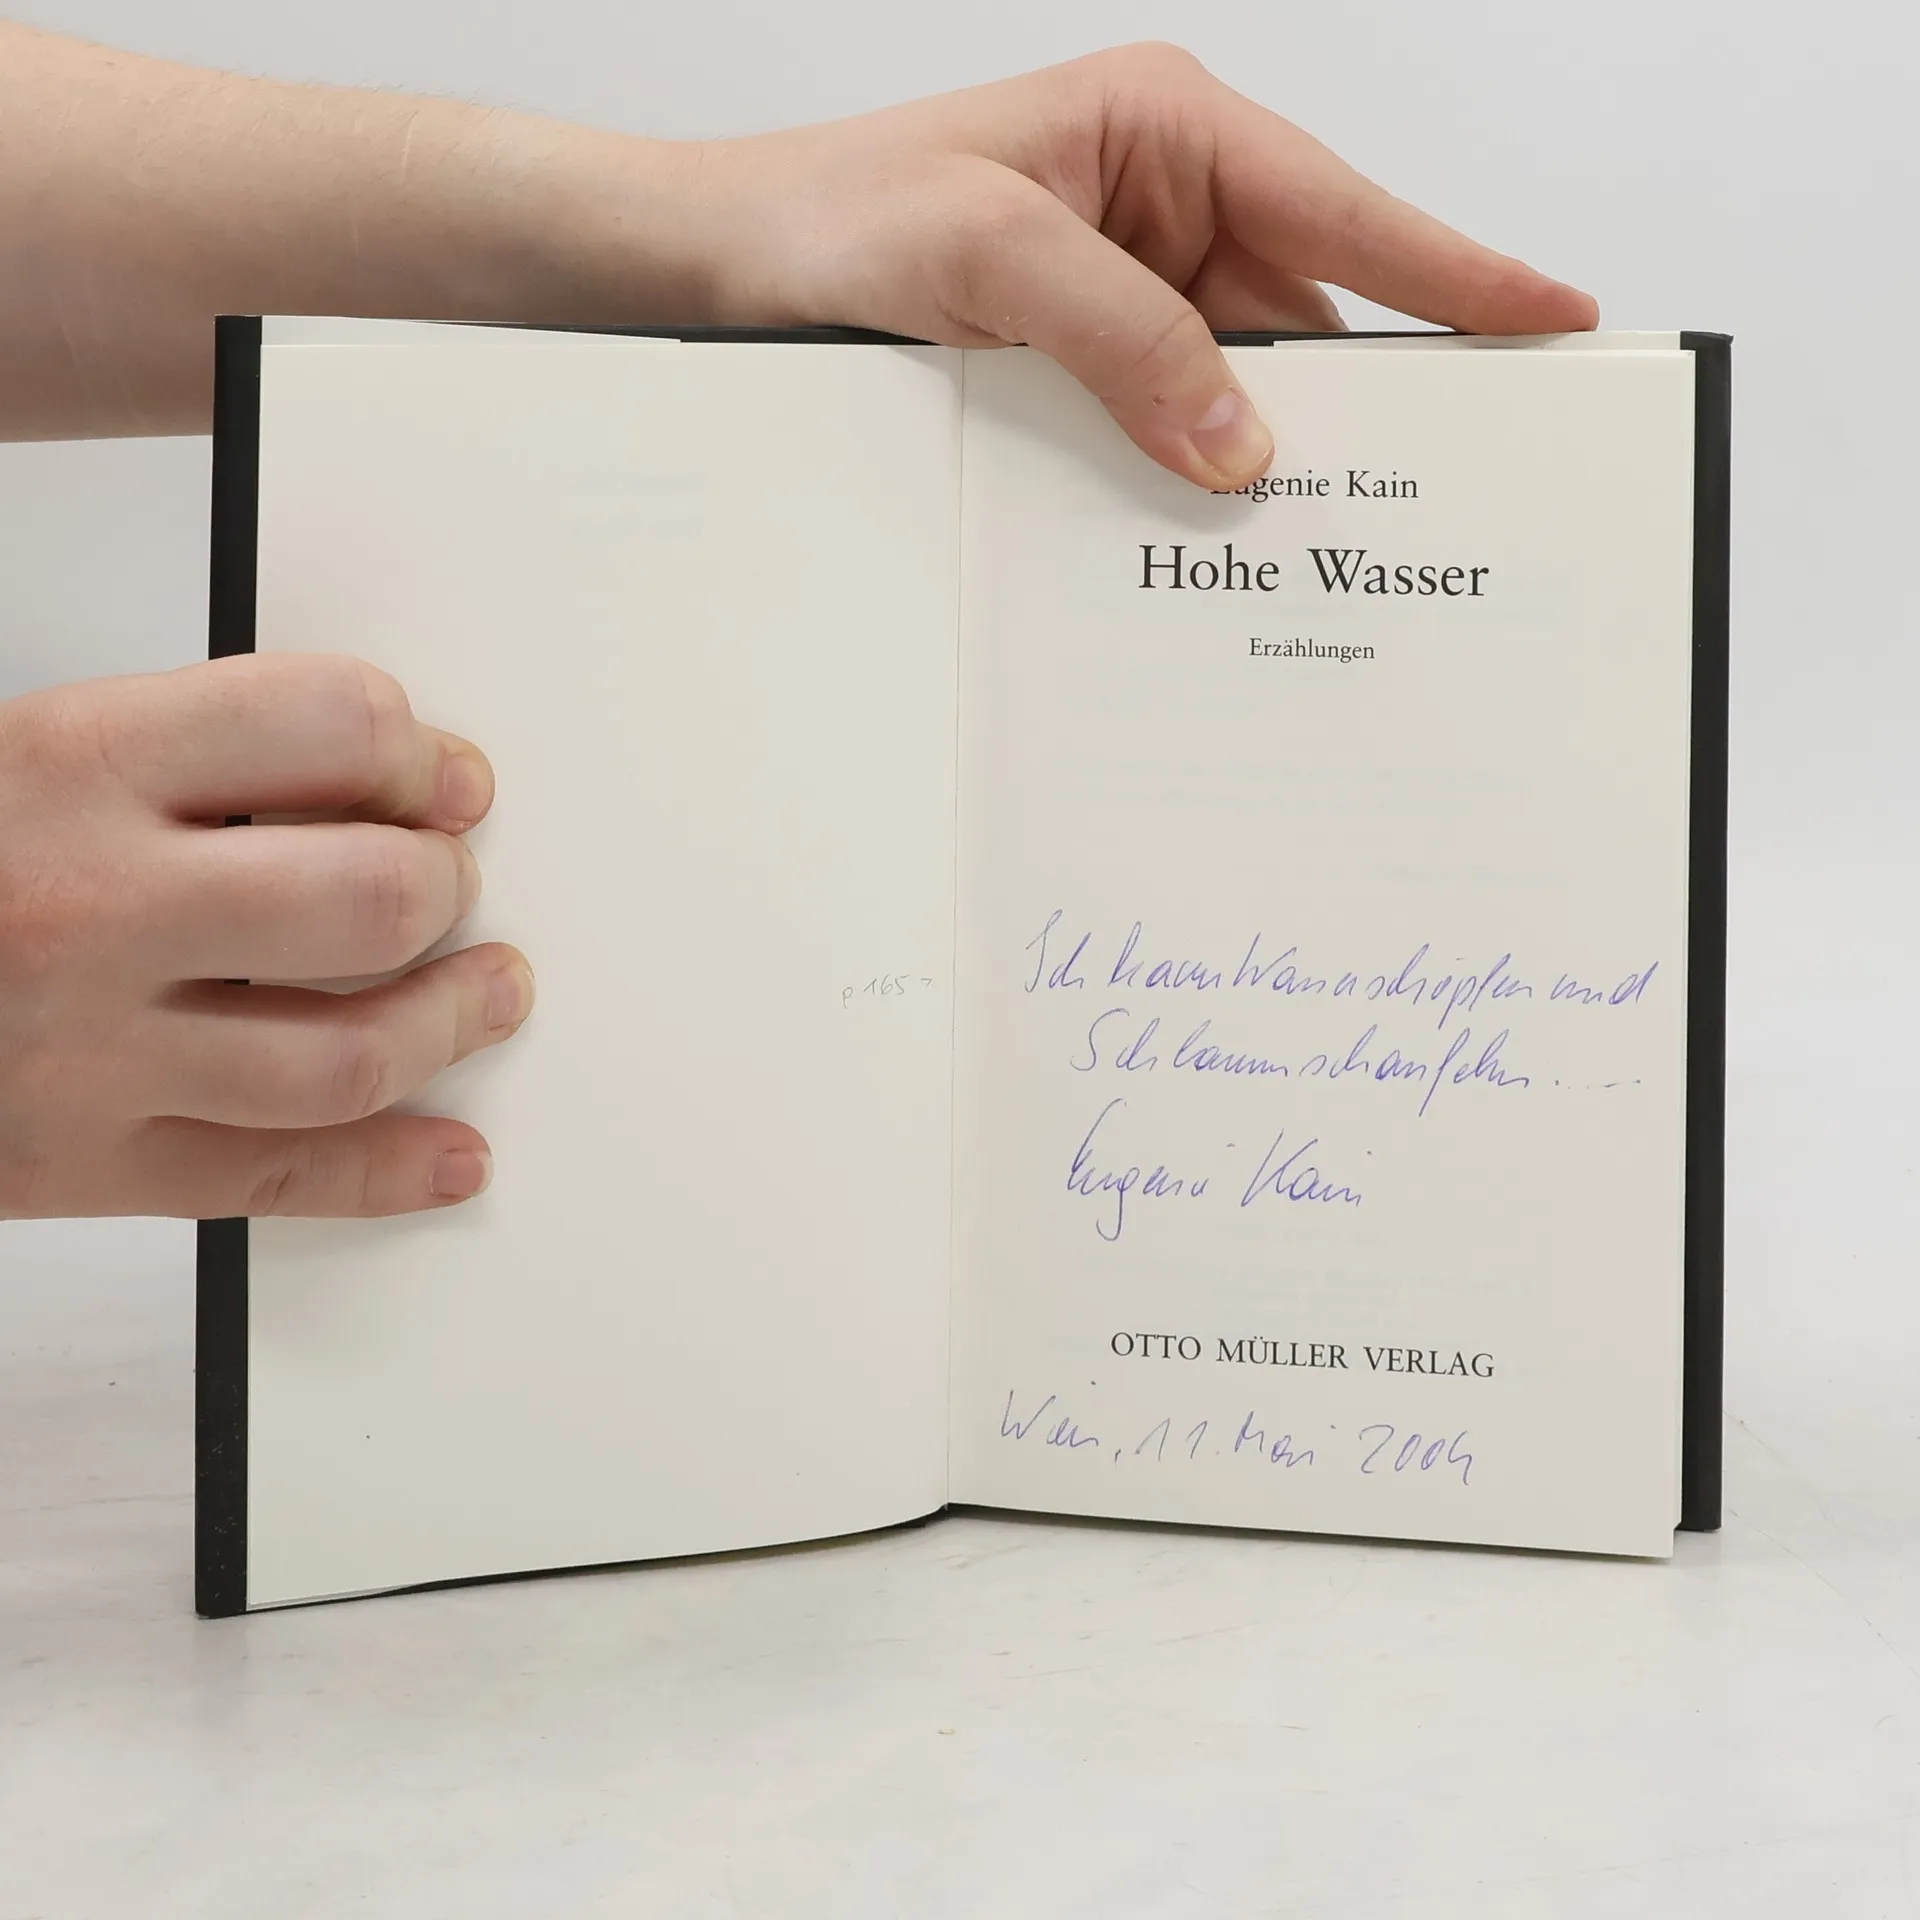 Eugenie Kain
Hohe Wasser
Erzählungen
Ich kann Wasser schöpfen und
Schlamm schaufeln.....
p 165
Eugenie Kain
OTTO MÜLLER VERLAG
Wien, 11. Mai 2004